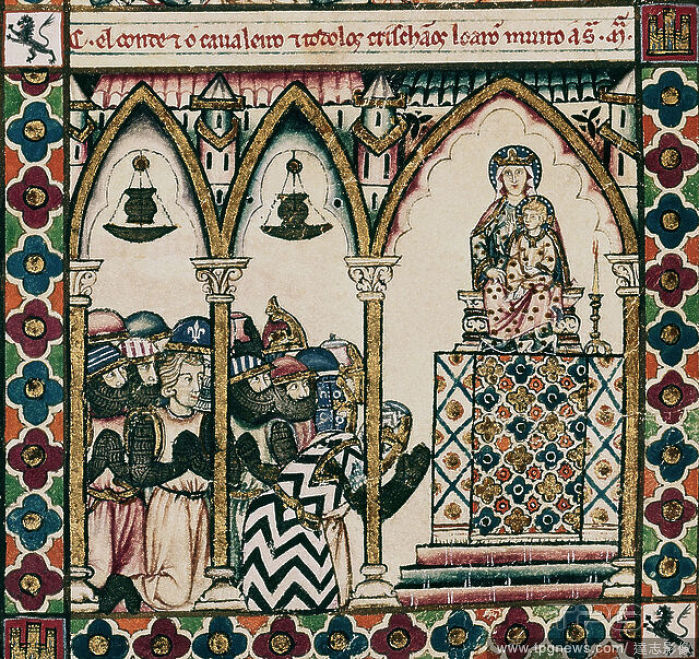 C. el conde ⁊ o cavaleiro ⁊ todolos crischãos loarõ muito a s̃. m̃.
www.tpgnews.com/ 達志影像